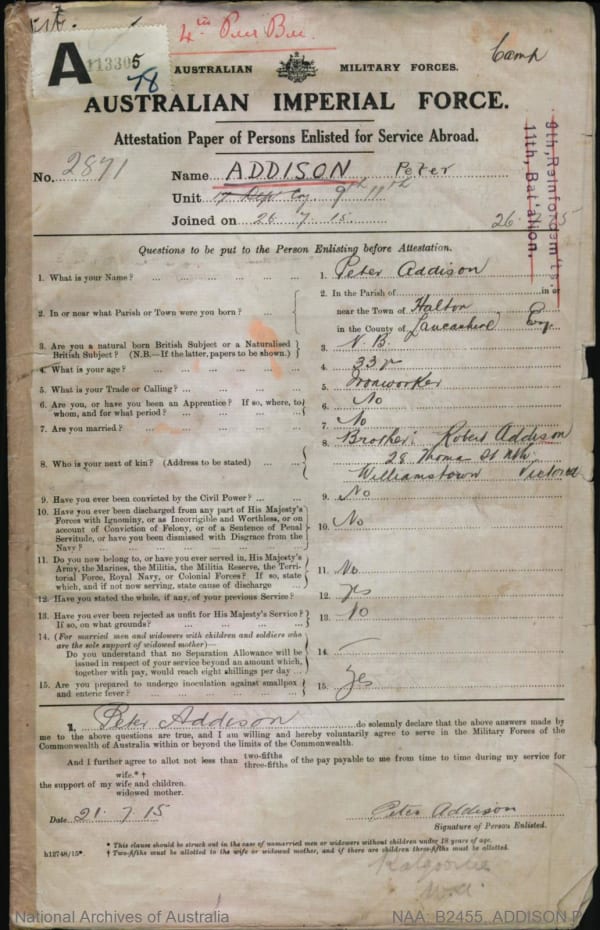 4th Pnr Bn.
A 113305
78
Camp
AUSTRALIAN MILITARY FORCES.
AUSTRALIAN IMPERIAL FORCE.
Attestation Paper of Persons Enlisted for Service Abroad.
No. 2871 Name ADDISON Peter
Unit 17 Dep Coy. 9th 11th
Joined on 26 7 15.
9th, Reinforcem'ts.
11th, Bat'alion.
Questions to be put to the Person Enlisting before Attestation.
1. What is your Name? 1. Peter Addison
2. In or near what Parish or Town were you born? 2. In the Parish of in or
near the Town of Halton
in the County of Lancashire Eng.
3. Are you a natural born British Subject or a Naturalised
British Subject? (N.B.—If the latter, papers to be shown.) 3. N. B.
4. What is your age? 4. 33 yr
5. What is your Trade or Calling? 5. Ironworker
6. Are you, or have you been an Apprentice? If so, where, to
whom, and for what period? 6. No
7. Are you married? 7. No
8. Who is your next of kin? (Address to be stated) 8. Brother: Robert Addison
28 Thomas St Nth.
Williamstown Victoria
9. Have you ever been convicted by the Civil Power? 9. No
10. Have you ever been discharged from any part of His Majesty's
Forces with Ignominy, or as Incorrigible and Worthless, or on
account of Conviction of Felony, or of a Sentence of Penal
Servitude, or have you been Dismissed with Disgrace from the
Navy? 10. No
11. Do you now belong to, or have you ever served in, His Majesty's
Army, the Marines, the Militia, the Militia Reserve, the Terri-
torial Force, Royal Navy, or Colonial Forces? If so, state
which, and if not now serving, state cause of discharge 11. No
12. Have you stated the whole, if any, of your previous Service? 12. yes
13. Have you ever been rejected as unfit for His Majesty's Service?
If so, on what grounds? 13. No
14. (For married men and widowers with children and soldiers who
are the sole support of widowed mother)—
Do you understand that no Separation Allowance will be
issued in respect of your service beyond an amount which,
together with pay, would reach eight shillings per day 14. —
15. Are you prepared to undergo inoculation against smallpox
and enteric fever? 15. Yes
I, Peter Addison do solemnly declare that the above answers made by
me to the above questions are true, and I am willing and hereby voluntarily agree to serve in the Military Forces of the
Commonwealth of Australia within or beyond the limits of the Commonwealth.
And I further agree to allot not less than two-fifths three-fifths of the pay payable to me from time to time during my service for
wife.*†
the support of my wife and children.
widowed mother.
Date 21. 7 15 Peter Addison
Signature of Person Enlisted.
* This clause should be struck out in the case of unmarried men or widowers without children under 18 years of age.
h12748/15*. † Two-fifths must be allotted to the wife or widowed mother, and if there are children three-fifths must be allotted.
Kalgoorlie
W.A.
National Archives of Australia NAA: B2455, ADDISON P